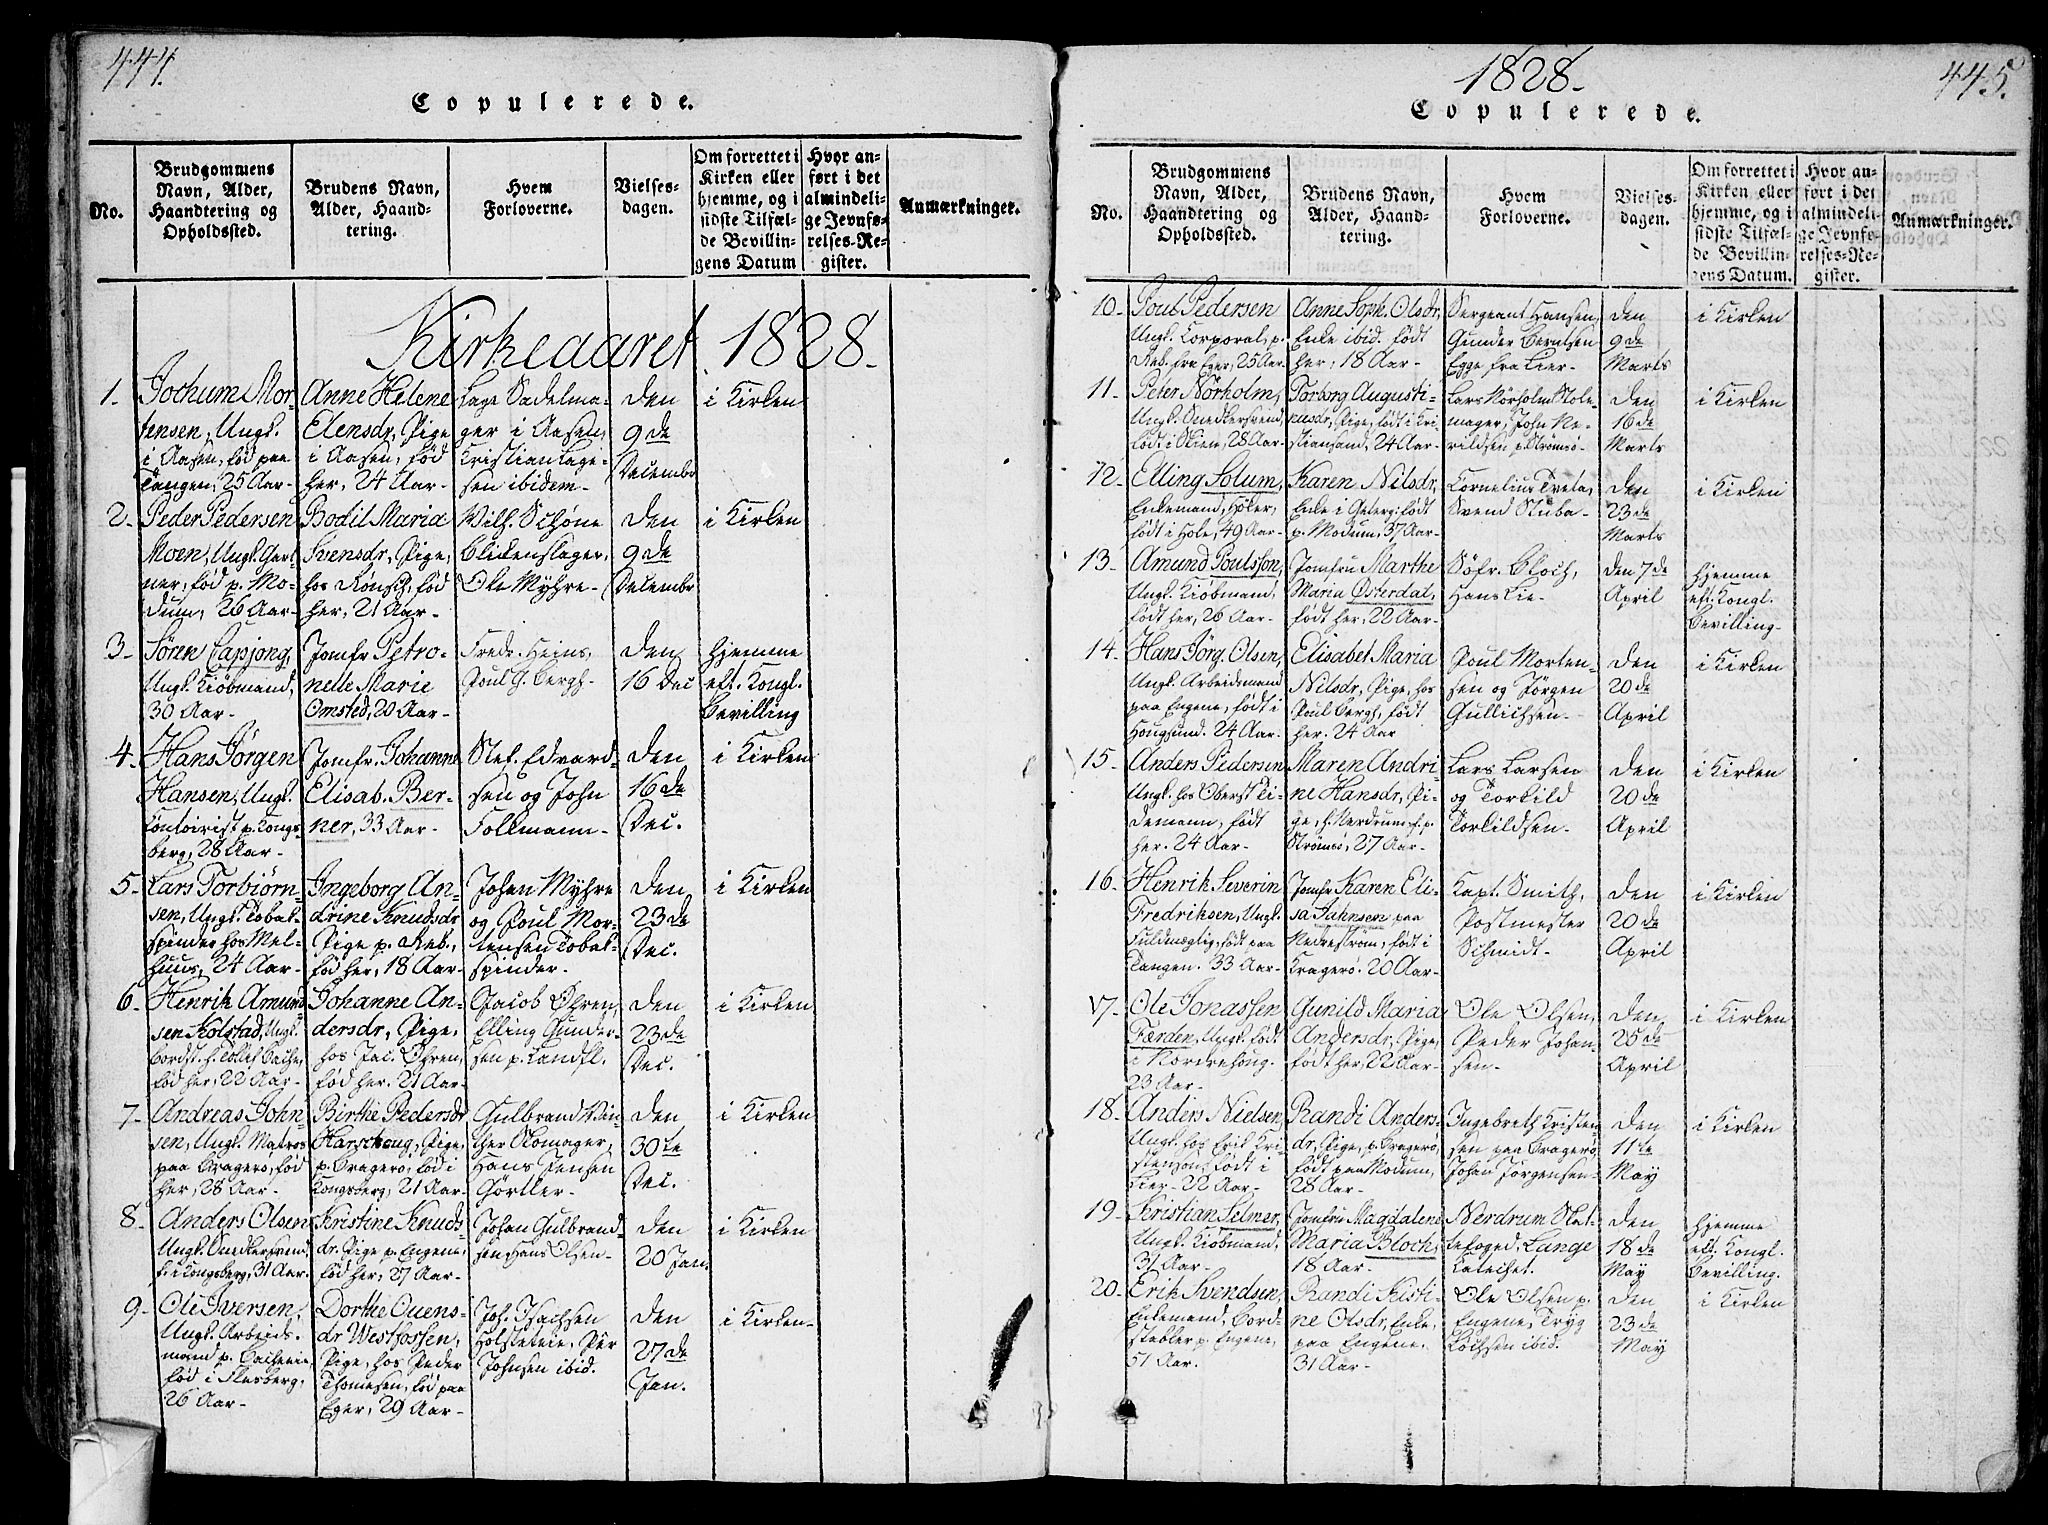 444.
Copulerede.
No.
Brudgommens Navn, Alder, Haandtering og Opholdssted.
Brudens Navn, Alder, Haandtering.
Hvem Forloverne.
Vielsesdagen.
Om forrettet i Kirken eller hjemme, og i sidste Tilfælde Bevillingens Datum
Hvor anført i det almindelige Jevnførelses-Register.
Anmærkninger.
Kirkeaaret 1828.
1.
Jochum Mortensen, Ungk. i Aasen, fød paa Tangen, 25 Aar
Anne Helene Elensdr, Pige i Aasen, fød her, 24 Aar
Lage Sadelmager i Aasen, Kristian Lagesen ibidem
den 9de Decembr
i Kirken
2.
Peder Pedersen Moen, Ungk. fød p. Modum, 26 Aar
Bodil Maria Svensdr, Pige, fød her, 21 Aar
Wilh. Schøne Blikenslager, Ole Myhre
den 9de Decembr
i Kirken
3.
Søren Capjong, Ungk. Kiøbmand, 30 Aar
Jomfr Petronelle Marie Omsted, 20 Aar
Fredr. Heins, Poul G. Bergh
den 16 Dec
hjemme eft. Kongl. Bevilling
4.
Hans Jørgen Hansen, Ungk. Contoirist p. Kongsberg, 28 Aar
Jomfr. Johanne Elisab. Berner, 33 Aar
Stef. Edvardsen og John Follmann
den 16de Dec.
i Kirken
5.
Lars Torbiørnsen, Ungk. Tobakspinder hos Melhuus, 24 Aar
Ingeborg Andrine Knudsdr Pige p. Øeb., fød her, 18 Aar
Johan Myhre og Poul Mortensen Tobakspinder
den 23de Dec.
i Kirken
6.
Henrik Amundsen Kolstad, Ungk. fød her, 22 Aar
Johanne Andersdr, Pige, hos Jac. Øhren, fød her, 21 Aar
Jacob Øhren, Elling Gundersen p. Landfl.
den 23de Dec.
i Kirken
7.
Andreas Johnsen, Ungk. Matros paa Bragerø, fød her, 28 Aar
Birthe Pedersdr Pige, p. Bragerø, fød i Kongsberg, 21 Aar
Gulbrand Winther Skomager, Hans Jensen Gørtler
den 30te Dec.
i Kirken
8.
Anders Olsen Ungk. Snedkersvend, f. i Kongsberg, 31 Aar
Kristine Knudsdr. Pige p. Engene, fød her, 27 Aar
Johan Gulbrandsen Hans Olsen
den 20 Jan.
i Kirken
9.
Ole Iversen, Ungk. Arbeidsmand p. fød i Flesberg, 26 Aar
Dorthe Ouensdr Westfossen, Pige, hos Peder Thomesen, fød paa Eger, 29 Aar
Joh. Isachsen Per Johnsen ibid.
den 27de Jan.
i Kirken
1828.
445.
Copulerede.
No.
Brudgommens Navn, Alder, Haandtering og Opholdssted.
Brudens Navn, Alder, Haandtering.
Hvem Forloverne.
Vielsesdagen.
Om forrettet i Kirken eller hjemme, og i sidste Tilfælde Bevillingens Datum.
Hvor anført i det almindelige Jevnførelses-Register.
Anmærkninger.
10.
Poul Pedersen Ungk. Corporal, p. fra Eger, 25 Aar
Anne Soph. Olsdr, Enke ibid. født her, 18 Aar
Sergeant Hansen, Gunder Berntsen Egge fra Lier
den 9de Marts
i Kirken
11.
Peter Nörholm, Ungk. Snedkersvend, født i Skien, 28 Aar
Torborg Augustinusdr, Pige, født i Kristiansand, 24 Aar
Lars Nörholm Stolemager, John p. Strømsø
den 16de Marts
i Kirken
12.
Elling Solum, Enkemand, født i Hole, 49 Aar
Karen Nilsdr, Enke født p. Modum, 37 Aar
Cornelius Tveta, Svend Stuba
den 23de Marts
i Kirken
13.
Amund Poulsson, Ungk. Kiöbmand, født her, 26 Aar
Jomfru Marthe Maria Østerdal, født her, 22 Aar
Söfr. Bloch, Hans Kie
den 7de April
hjemme eft. Kongl. Bevilling
14.
Hans Jörg. Olsen, Ungk. Arbeidsmand paa Engene, født i Hougsund. 24 Aar
Elisabet Maria Nilsdr, Pige, hos Poul Bergh, født her. 24 Aar
Poul Mortensen og Jørgen Gullichsen
den 20de April
i Kirken
15.
Anders Pedersen Ungk. hos Oberst Tidemann, født her. 24 Aar
Maren Andrine Hansdr, Pige, h. Nerdrum f. p. Strømsö, 27 Aar
Lars Larsen og Torkild Torkildsen
den 20de April
i Kirken
16.
Henrik Severin Fredriksen, Ungk. Fuldmægtig, født paa Tangen. 33 Aar
Jomfr Karen Elisa Jahnsen paa Nedrestrøm, født i Kragerö. 20 Aar
Kapt. Smith, Postmester Schmidt
den 20de April
i Kirken
17.
Ole Jonassen Færden, Ungk. født i Nordrehoug. 23 Aar
Gunild Maria Andersdr, Pige, født her, 22 Aar
Ole Olsen, Peder Johansen
den 25de April
i Kirken
18.
Anders Nielsen, Ungk. hos Erik Kristensen, født i Lier 22 Aar
Randi Andersdr, Pige, p. Bragerö, født paa Modum, 28 Aar
Ingebreth Kristensen paa Bragerö, Johan Jørgensen
den 11te May
i Kirken
19.
Kristian Selmer, Ungk. Kiöbmand, 31 Aar
Jomfru Magdalene Maria Bloch, 18 Aar
Nerdrum Slotsfoged, Lange Catechet.
den 18de May
hjemme eft. Kongl. Bevilling.
20.
Erik Svendsen, Enkemand, Bordstabler p. Engene, 51 Aar.
Randi Kistine Olsdr, Enke, paa Engene, 31 Aar
Ole Olsen p. Engene, Tryg ibid.
den 23de May
i Kirken